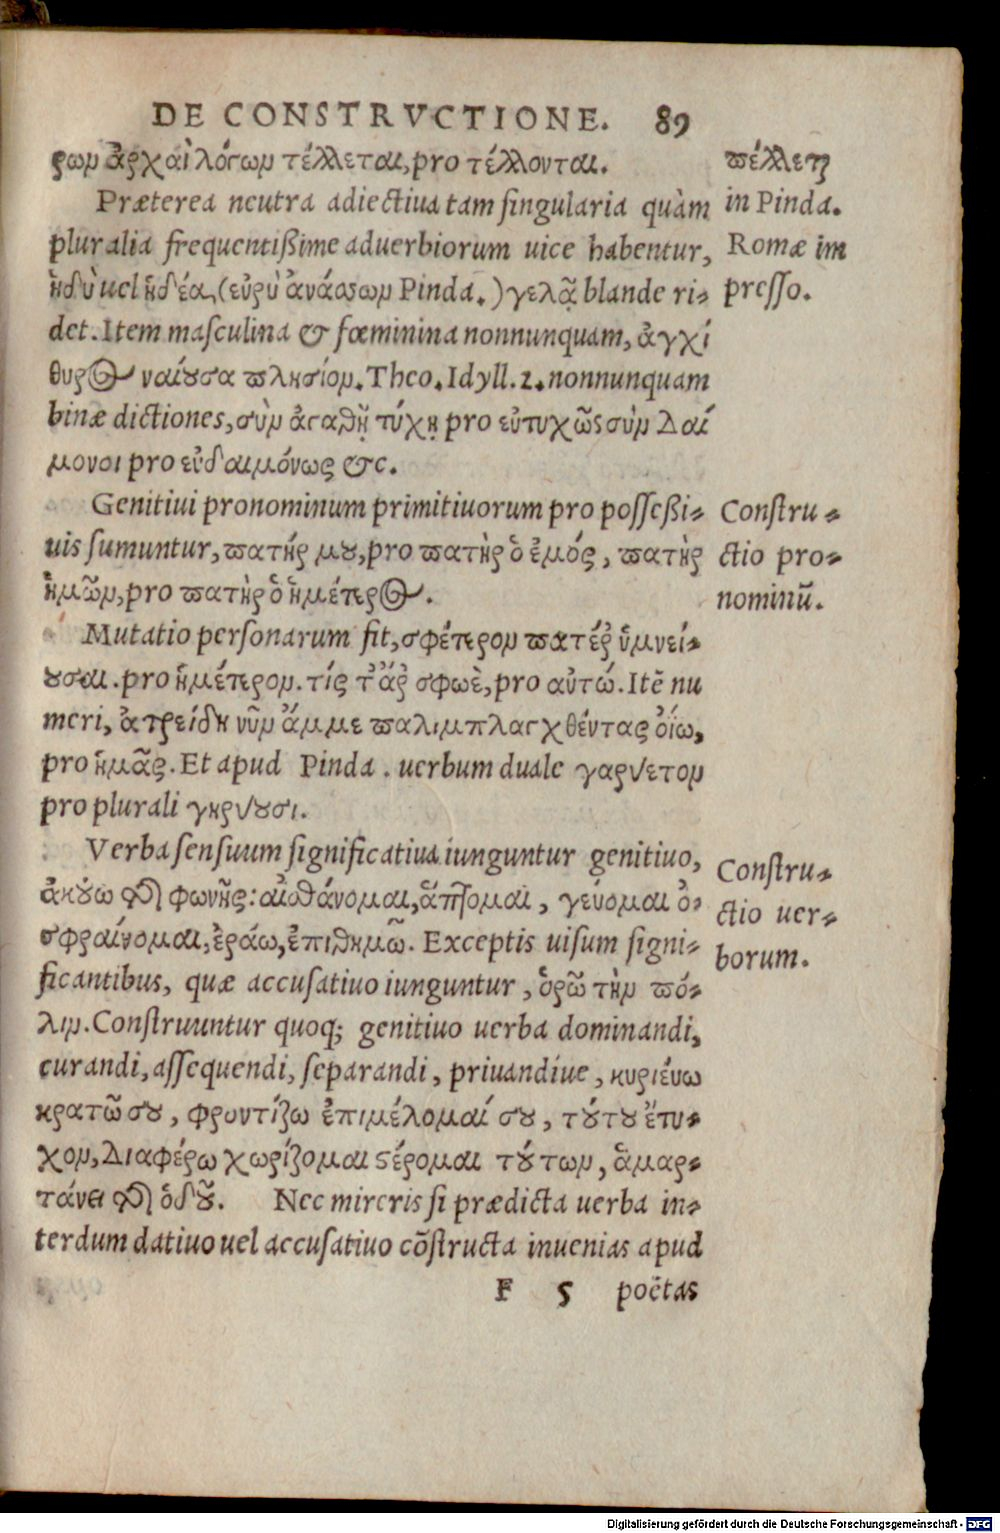 DE CONSTRVCTIONE. 89
ρων ἀρχαὶ λόγων τέλλεται, pro τέλλονται.
Præterea neutra adiectiua tam singularia quàm
pluralia frequentißime aduerbiorum uice habentur,
ἡδὺ uel ἡδέα, (εὐρὺ ἀνάσσων Pinda.) γελᾷ blande ri-
det. Item masculina & fœminina nonnunquam, ἀγχί
θυρος ναίουσα πλησίον. Theo. Idyll. 2. nonnunquam
binæ dictiones, σὺν ἀγαθῇ τύχῃ pro εὐτυχῶς σὺν Δαί
μονοι pro εὐδαιμόνως &c.
Genitiui pronominum primitiuorum pro posseßi-
uis sumuntur, πατήρ μου, pro πατὴρ ὁ ἐμός, πατὴρ
ἡμῶν, pro πατὴρ ὁ ἡμέτερος.
Mutatio personarum fit, σφέτερον πατέρ ὑμνεί-
ουσαι. pro ἡμέτερον. τίς τ' ἄρ σφωὲ, pro αὐτώ. Itē nu
meri, ἀτρείδη νῦν ἄμμε παλιμπλαγχθέντας ὀίω,
pro ἡμᾶς. Et apud Pinda. uerbum duale γαρύετον
pro plurali γηρύουσι.
Verba sensuum significatiua iunguntur genitiuo,
ἀκούω τῆς φωνῆς: αἰσθάνομαι, ἅπτομαι, γεύομαι ὀ-
σφραίνομαι, ἐράω, ἐπιθημῶ. Exceptis uisum signi-
ficantibus, quæ accusatiuo iunguntur, ὁρῶ τὴν πό-
λιν. Construuntur quoq; genitiuo uerba dominandi,
curandi, assequendi, separandi, priuandiue, κυριέυω
κρατῶ σου, φροντίζω ἐπιμέλομαί σου, τούτου ἔτυ-
χον, Διαφέρω χωρίζομαι στέρομαι τούτων, ἁμαρ-
τάνει τῆς ὁδοῦ. Nec mireris si prædicta uerba in-
terdum datiuo uel accusatiuo cōstructa inuenias apud
F 5 poëtas
πέλλεται
in Pinda.
Romæ im
presso.
Constru-
ctio pro-
nominū.
Constru-
ctio uer-
borum.
Digitalisierung gefördert durch die Deutsche Forschungsgemeinschaft - DFG